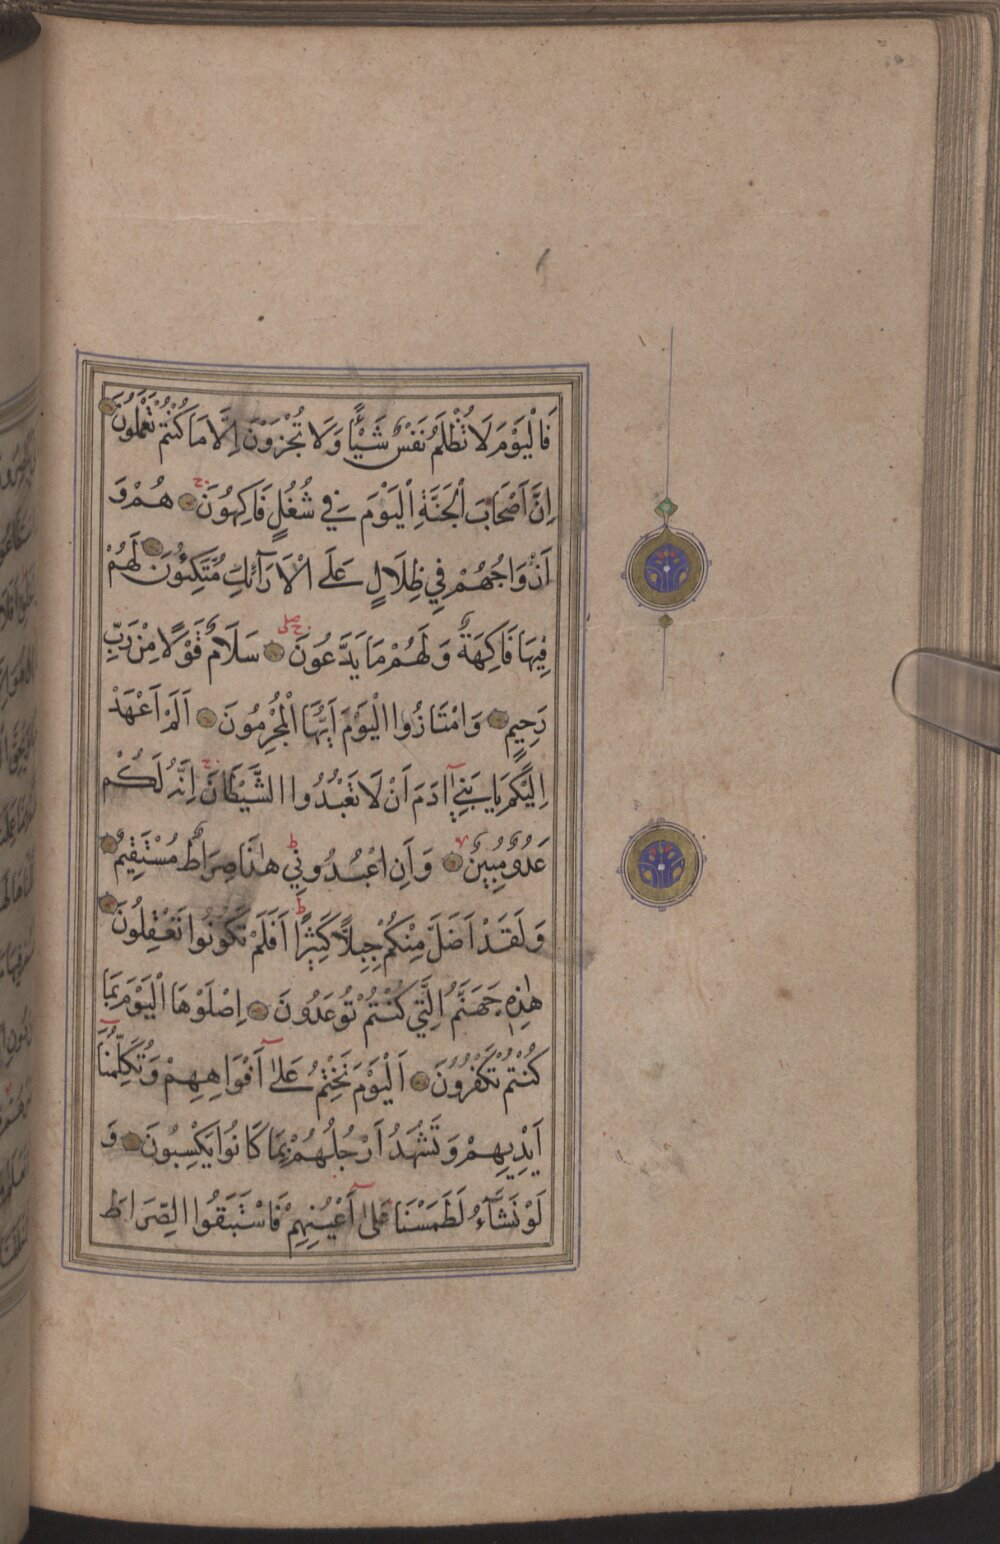 فَالْيَوْمَ لَا تُظْلَمُ نَفْسٌ شَيْئًا وَلَا تُجْزَوْنَ اِلَّا مَا كُنْتُمْ تَعْمَلُونَ
اِنَّ اَصْحَابَ الْجَنَّةِ الْيَوْمَ فِي شُغُلٍ فَاكِهُونَ هُمْ وَ
اَزْوَاجُهُمْ فِي ظِلَالٍ عَلَى الْاَرَآئِكِ مُتَّكِئُونَ لَهُمْ
فِيهَا فَاكِهَةٌ وَلَهُمْ مَا يَدَّعُونَ سَلَامٌ قَوْلًا مِنْ رَبٍّ
رَحِيمٍ وَامْتَازُوا الْيَوْمَ اَيُّهَا الْمُجْرِمُونَ اَلَمْ اَعْهَدْ
اِلَيْكُمْ يَا بَنِيٓ اٰدَمَ اَنْ لَا تَعْبُدُوا الشَّيْطَانَ اِنَّهُ لَكُمْ
عَدُوٌّ مُبِينٌ وَاَنِ اعْبُدُونِي هٰذَا صِرَاطٌ مُسْتَقِيمٌ
وَلَقَدْ اَضَلَّ مِنْكُمْ جِبِلًّا كَثِيرًا اَفَلَمْ تَكُونُوا تَعْقِلُونَ
هٰذِهِ جَهَنَّمُ الَّتِي كُنْتُمْ تُوعَدُونَ اِصْلَوْهَا الْيَوْمَ بِمَا
كُنْتُمْ تَكْفُرُونَ اَلْيَوْمَ نَخْتِمُ عَلٰٓى اَفْوَاهِهِمْ وَتُكَلِّمُنَآ
اَيْدِيهِمْ وَتَشْهَدُ اَرْجُلُهُمْ بِمَا كَانُوا يَكْسِبُونَ وَ
لَوْ نَشَآءُ لَطَمَسْنَا عَلٰٓى اَعْيُنِهِمْ فَاسْتَبَقُوا الصِّرَاطَ